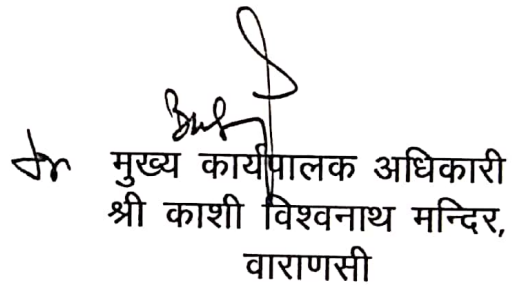 for मुख्य कार्यपालक अधिकारी
श्री काशी विश्वनाथ मन्दिर,
वाराणसी